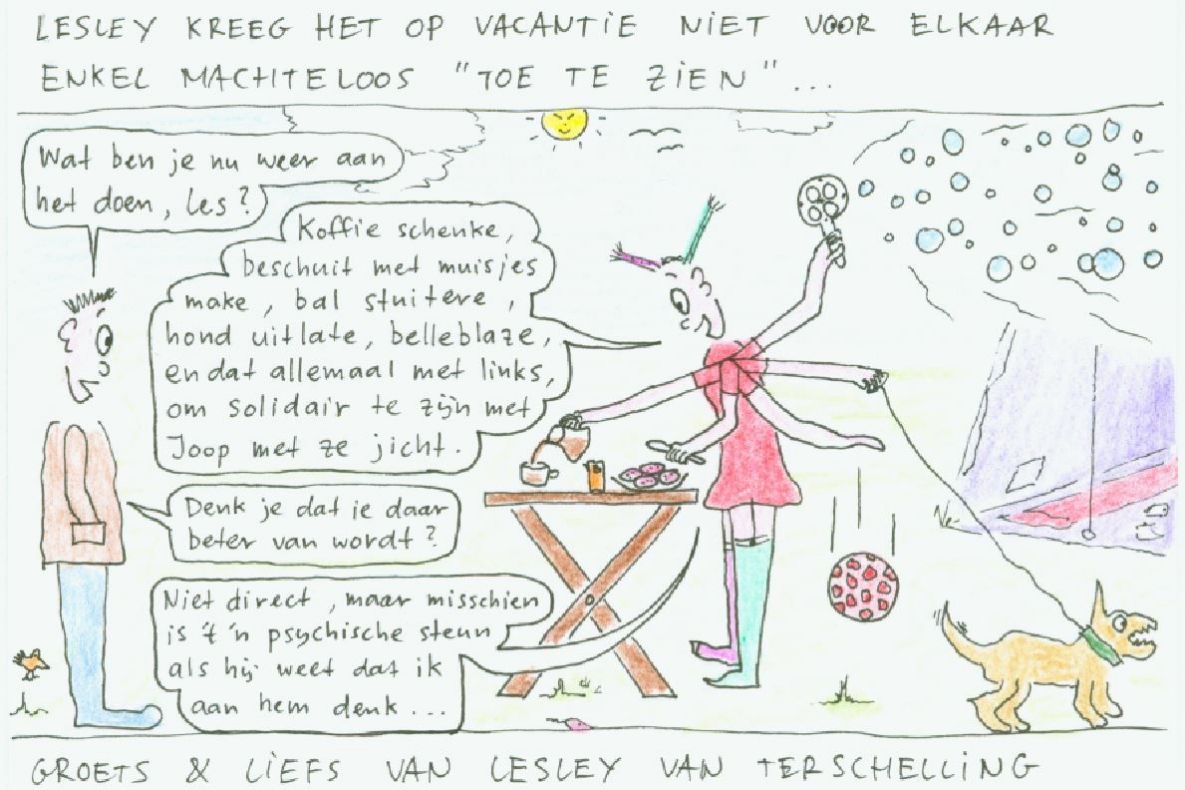 LESLEY KREEG HET OP VACANTIE NIET VOOR ELKAAR
ENKEL MACHTELOOS "TOE TE ZIEN"...
Wat ben je nu weer aan
het doen, Les?
Koffie schenke,
beschuit met muisjes
make, bal stuitere,
hond uitlate, belleblaze,
en dat allemaal met links,
om solidair te zijn met
Joop met ze jicht.
Denk je dat ie daar
beter van wordt?
Niet direct, maar misschien
is 't 'n psychische steun
als hij weet dat ik
aan hem denk...
GROETS & LIEFS VAN LESLEY VAN TERSCHELLING